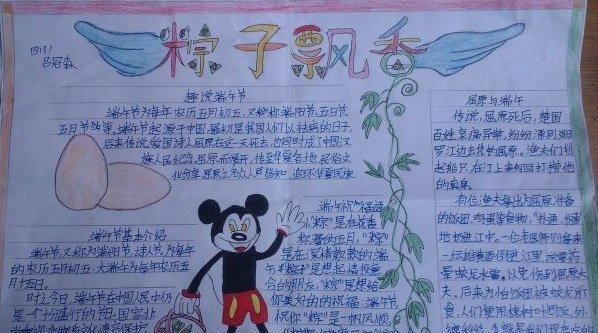 粽子飘香
四(3)
吕冠森
趣谈端午节
端午节为每年农历五月初五,又称端阳节、五日节、
五月节等。端午节起源于中国,最初是我国人们以祛病的日子,
后来传说爱国诗人屈原在这一天死去,也同时成了中国汉
族人民纪念屈原
端午节基本介绍
端午节又称为端阳节、诗人节,为每年
的农历五月初五,大端午为每年农历五
月十五日。
时至今日,端午节在中国人民中仍
是一个十分盛行的节日。国家非
端午祝“福语
“粽”是在花香
“粽”
是在深情款款的端
合的朋友,“粽”是想给
你美好的的祝福:端午节
祝你“粽”是一帆风顺
屈原与端午
传说,屈原死后,楚国
百姓哀痛异常,纷纷涌到汨
罗江边去凭吊屈原。渔夫们划
起船只,在江上来回打捞他
的真身。
有位渔夫拿出为屈原准备
的饭团、鸡蛋等食物,“扑通、扑通”
地抛进江中。一位老医师则拿来
一坛雄黄酒倒进江里,
晕蛟龙水兽,以免伤到屈原大
夫。后来为怕饭团被蛟龙所
食,人们使用楝树叶包饭,外